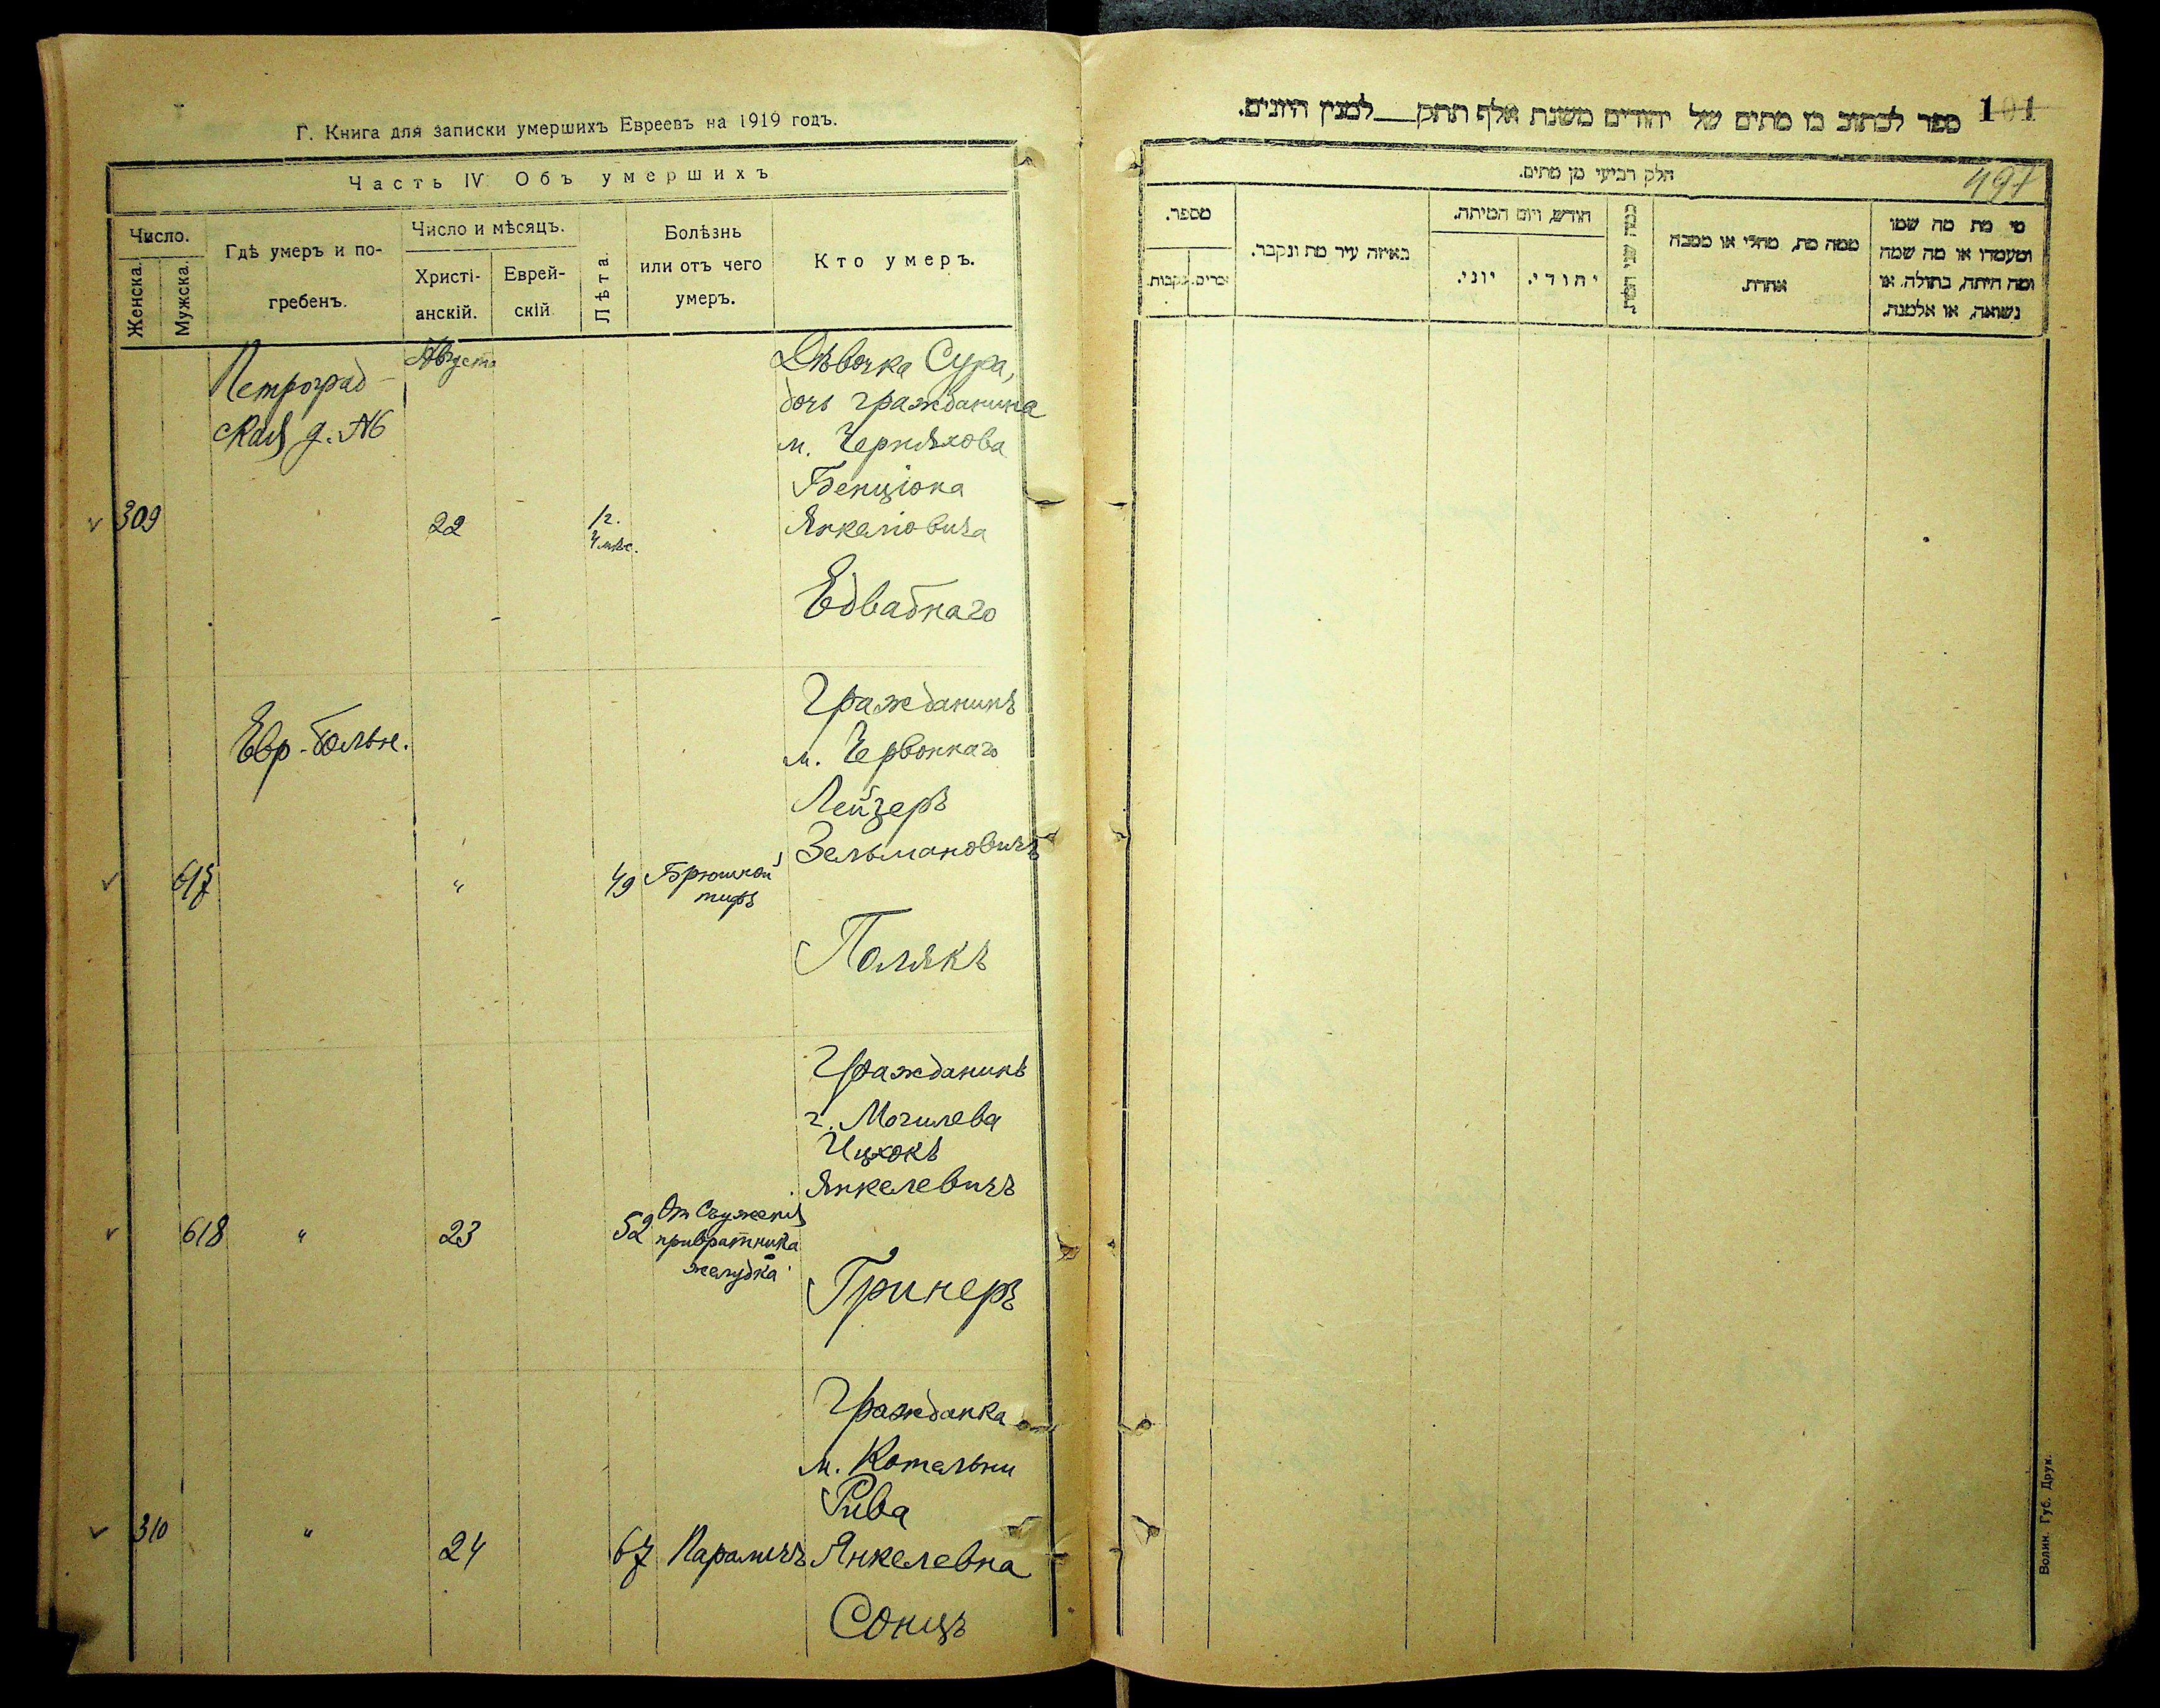 Г. Книга для записки умершихъ Евреевъ на 1919 годъ.
Часть IV Объ умершихъ
Число.
Женска.
Мужска.
Гдѣ умеръ и по-
гребенъ.
Число и мѣсяцъ.
Христі-
анскій.
Еврей-
скій
Лѣта.
Болѣзнь
или отъ чего
умеръ.
Кто умеръ.
Августа
Петроград-
ская д. №6
309
22
1 г.
4 мѣс.
Дѣвочка Сура,
дочь гражданина
м. Черняхова
Бенціона
Янкелiовича
Едвабнаго
Евр. больн.
617
"
49
Брюшной
тифъ
Гражданинъ
м. Червоннаго
Лейзеръ
Зельмановичъ
Полякъ
618
"
23
52
От Съуженія
привратника
желудка
Гражданинъ
г. Могилева
Ицхокъ
Янкелевичъ
Гринеръ
310
"
24
67
Параличъ
Гражданка
м. Котельни
Рива
Янкелевна
Сонцъ
101
ספר לכתוב בו מתים של יהודים משנת אלף תתק__למנין היונים.
497
חלק רביעי מן מתים.
מספר.
נקבות.
זכרים.
באיזה עיר מת ונקבר.
חודש, ויום המיתה.
יוני.
יהודי.
כמה שני המת
ממה מת, מחלי או מסבה
אחרת.
מי מת מה שמו
ומעמדו או מה שמה
ומה היתה, בתולה, או
נשואה, או אלמנה.
Волин. Губ. Друк.